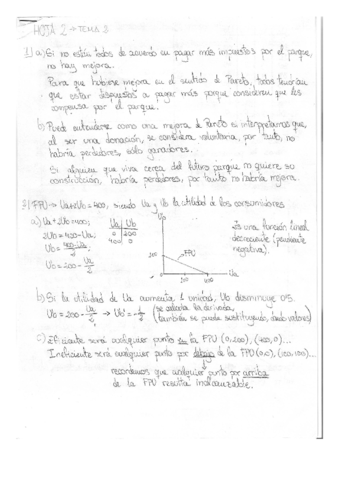 HOJA 2 → TEMA 3
1) a) Si no están todos de acuerdo en pagar más impuestos por el parque,
no hay mejora.
Para que hubiese mejora en el sentido de Pareto, todos tendrían
que estar dispuestos a pagar más porque consideren que les
compensa por el parque.
b) Puede entenderse como una mejora de Pareto si interpretamos que,
al ser una donación, se considera voluntaria, por tanto, no
habría perdedores, sólo ganadores.
Si alguien que viva cerca del futuro parque no quiere su
construcción, habría perdedores, por tanto no habría mejora.
FPU → Ua+2Ub=400, siendo Ua y Ub la utilidad de los consumidores
a) Ua+2Ub=400;
2Ub=400-Ua;
Ub = 400-Ua/2
Ub = 200 - Ua/2
Ua Ub
0 200
400 0
Ub
200
FPU
200 400 Ua
Es una función lineal
decreciente (pendiente
negativa).
b) Si la utilidad de Ua aumenta 1 unidad, Ub disminuye 0'5.
Ub = 200 - Ua/2 → Ub' = -1/2 (se calcula la derivada,
también se puede sustituyendo, dando valores)
c) Eficiente será cualquier punto en la FPU (0,200), (400,0)...
Ineficiente será cualquier punto por debajo de la FPU (0,0), (100,100)...
recordemos que cualquier punto por arriba
de la FPU resulta inalcanzable.